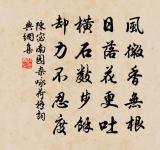 風微香無根
日落花更吐
橫石數步餘
却力不忍度
陳宓南園雜咏荷橋詩詞
典網集